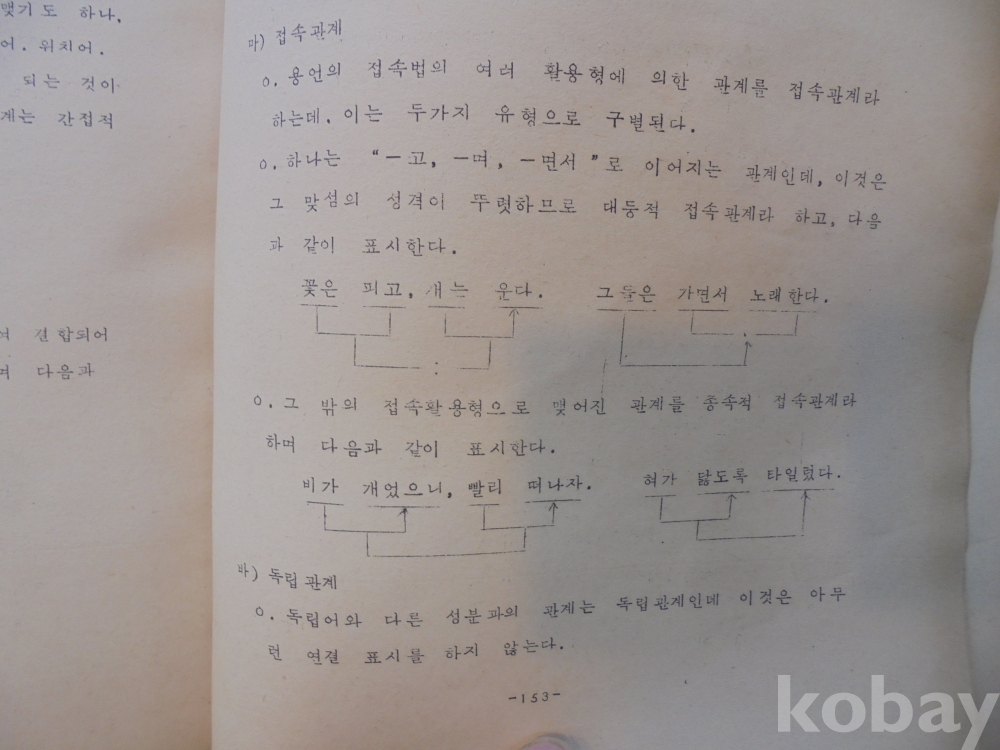 맺기도 하나,
어. 위치어.
되는 것이
계는 간접적
여 결합되어
며 다음과
마) 접속관계
o. 용언의 접속법의 여러 활용형에 의한 관계를 접속관계라
하는데. 이는 두가지 유형으로 구별된다.
o. 하나는 "－고, －며, －면서"로 이어지는 관계인데, 이것은
그 맞섬의 성격이 뚜렷하므로 대등적 접속관계라 하고, 다음
과 같이 표시한다.
꽃은 피고, 새는 운다. 그들은 가면서 노래한다.
o. 그 밖의 접속활용형으로 맺어진 관계를 종속적 접속관계라
하며 다음과 같이 표시한다.
비가 개었으니, 빨리 떠나자. 혀가 닳도록 타일렀다.
바) 독립관계
o. 독립어와 다른 성분과의 관계는 독립관계인데 이것은 아무
런 연결 표시를 하지 않는다.
-153-
kobay